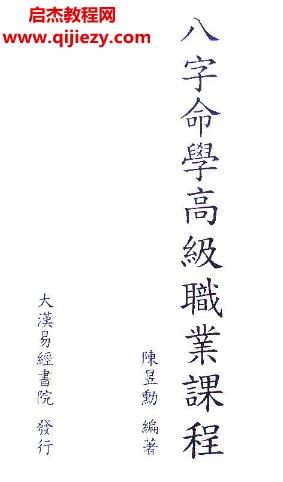 启杰教程网
www.qijiezy.com
八字命學高級職業課程
陳昱勳 編著
大漢易經書院 發行